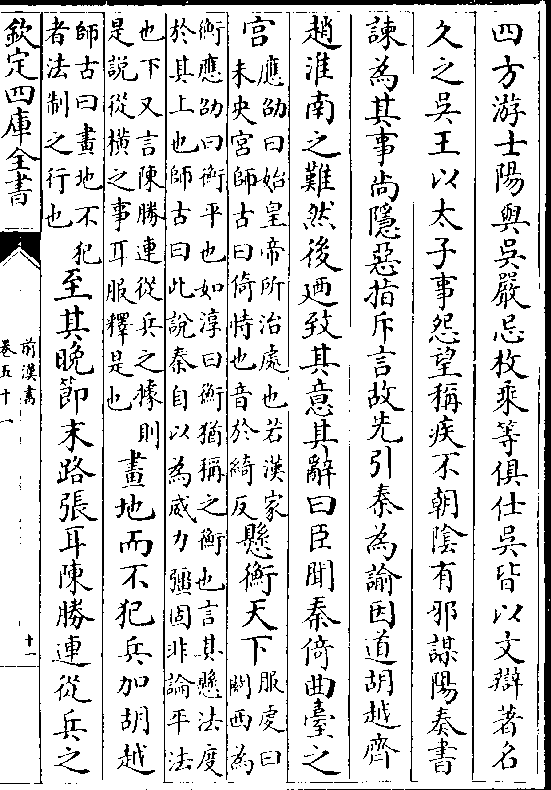 四方游士陽與吳嚴忌枚乘等俱仕吳皆以文辯著名
久之吳王以太子事怨望稱疾不朝陰有邪謀陽奏書
諫為其事尚隱惡指斥言故先引秦為諭因道胡越齊
趙淮南之難然後迺致其意其辭曰臣聞秦倚曲臺之
宮應劭曰始皇帝所治處也若漢家
未央宮師古曰倚恃也音於綺反懸衡天下服虔曰
關西為
衡應劭曰衡平也如淳曰衡猶稱之衡也言其懸法度
於其上也師古曰此說秦自以為威力彊固非論平法
也下又言陳勝連從兵之據
是說從橫之事耳服釋是也則畫地而不犯兵加胡越
師古曰畫地不犯
者法制之行也至其晚節末路張耳陳勝連從兵之
欽定四庫全書
前漢書
卷五十一
十一